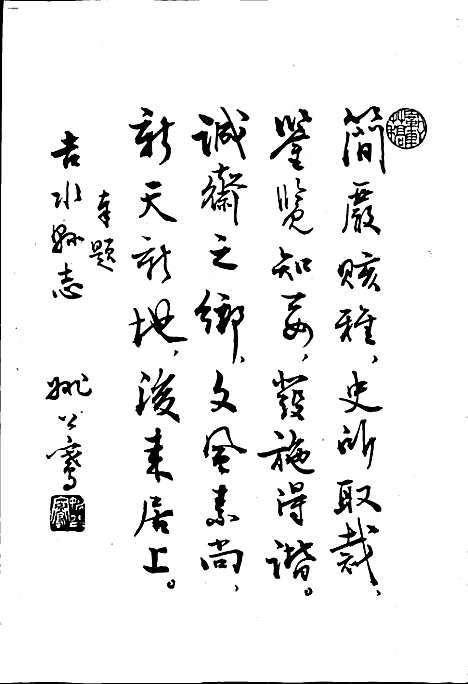 簡嚴賅雅，史所取裁，
鑒覽知要，發施得諧。
誠齋之鄉，文風素尚，
新天新地，後來居上。
奉題
吉水縣志
姚公騫